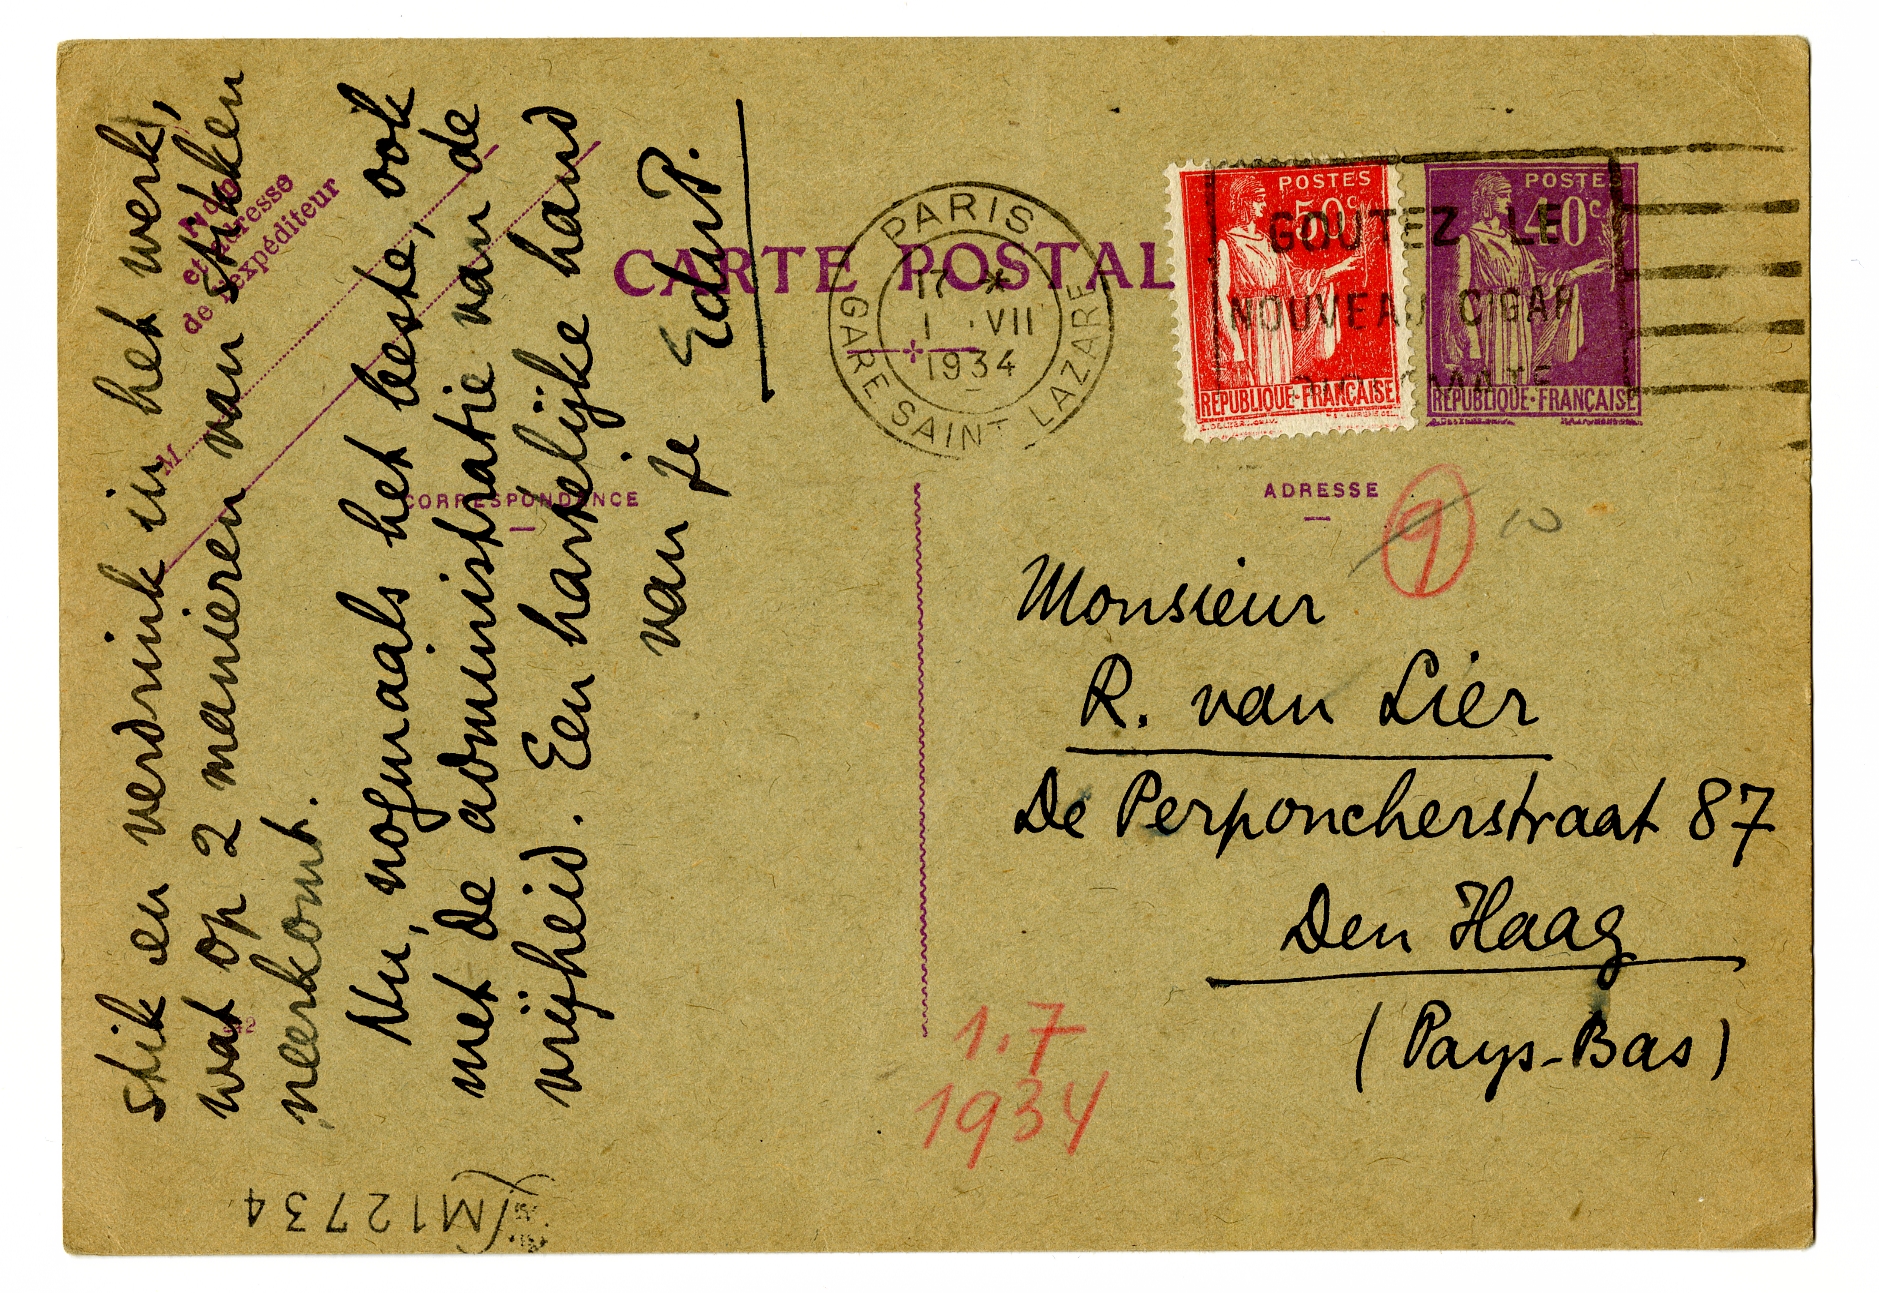 stik en verdrink in het werk,
wat op 2 manieren van stikken
neerkomt.
Nu, nogmaals het beste, ook
met de administratie van de
vrijheid. Een hartelijke hand
van je EduP.
Nom
et adresse
de l'expéditeur
M
CARTE POSTALE
CORRESPONDANCE
PARIS
17 *
1 · VII
1934
GARE SAINT LAZARE
POSTES
50c
REPUBLIQUE·FRANÇAISE
POSTES
40c
REPUBLIQUE·FRANÇAISE
GOUTEZ LE
NOUVEAU CIGAR
ADRESSE
9 10
Monsieur
R. van Lier
De Perponcherstraat 87
Den Haag
(Pays-Bas)
1.7
1934
M12734